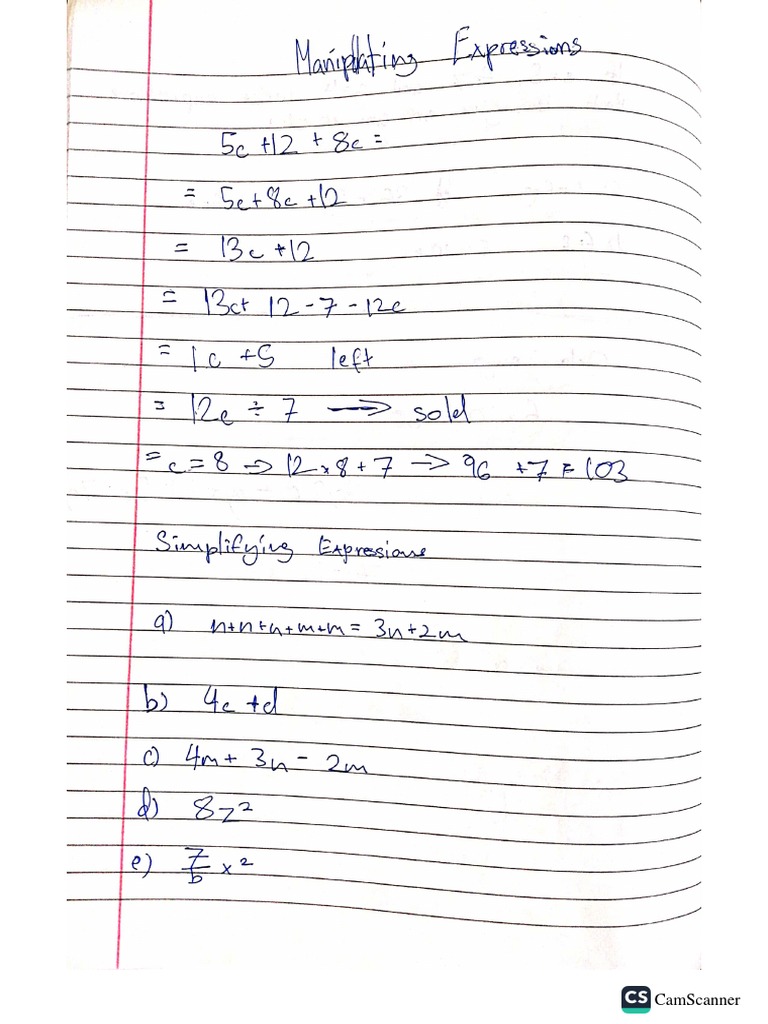 Maniplating Expressions
5c +12 + 8c =
= 5c+8c +12
= 13c +12
= 13c+ 12 - 7 - 12c
= 1c +5 left
= 12c ÷ 7 → sold
= c = 8 → 12 x 8 + 7 → 96 +7 = 103
Simplifying Expressions
a) n+n+n+m+m = 3n+2m
b) 4c +d
c) 4m + 3n - 2m
d) 8z²
e) 7/b x²
CS CamScanner